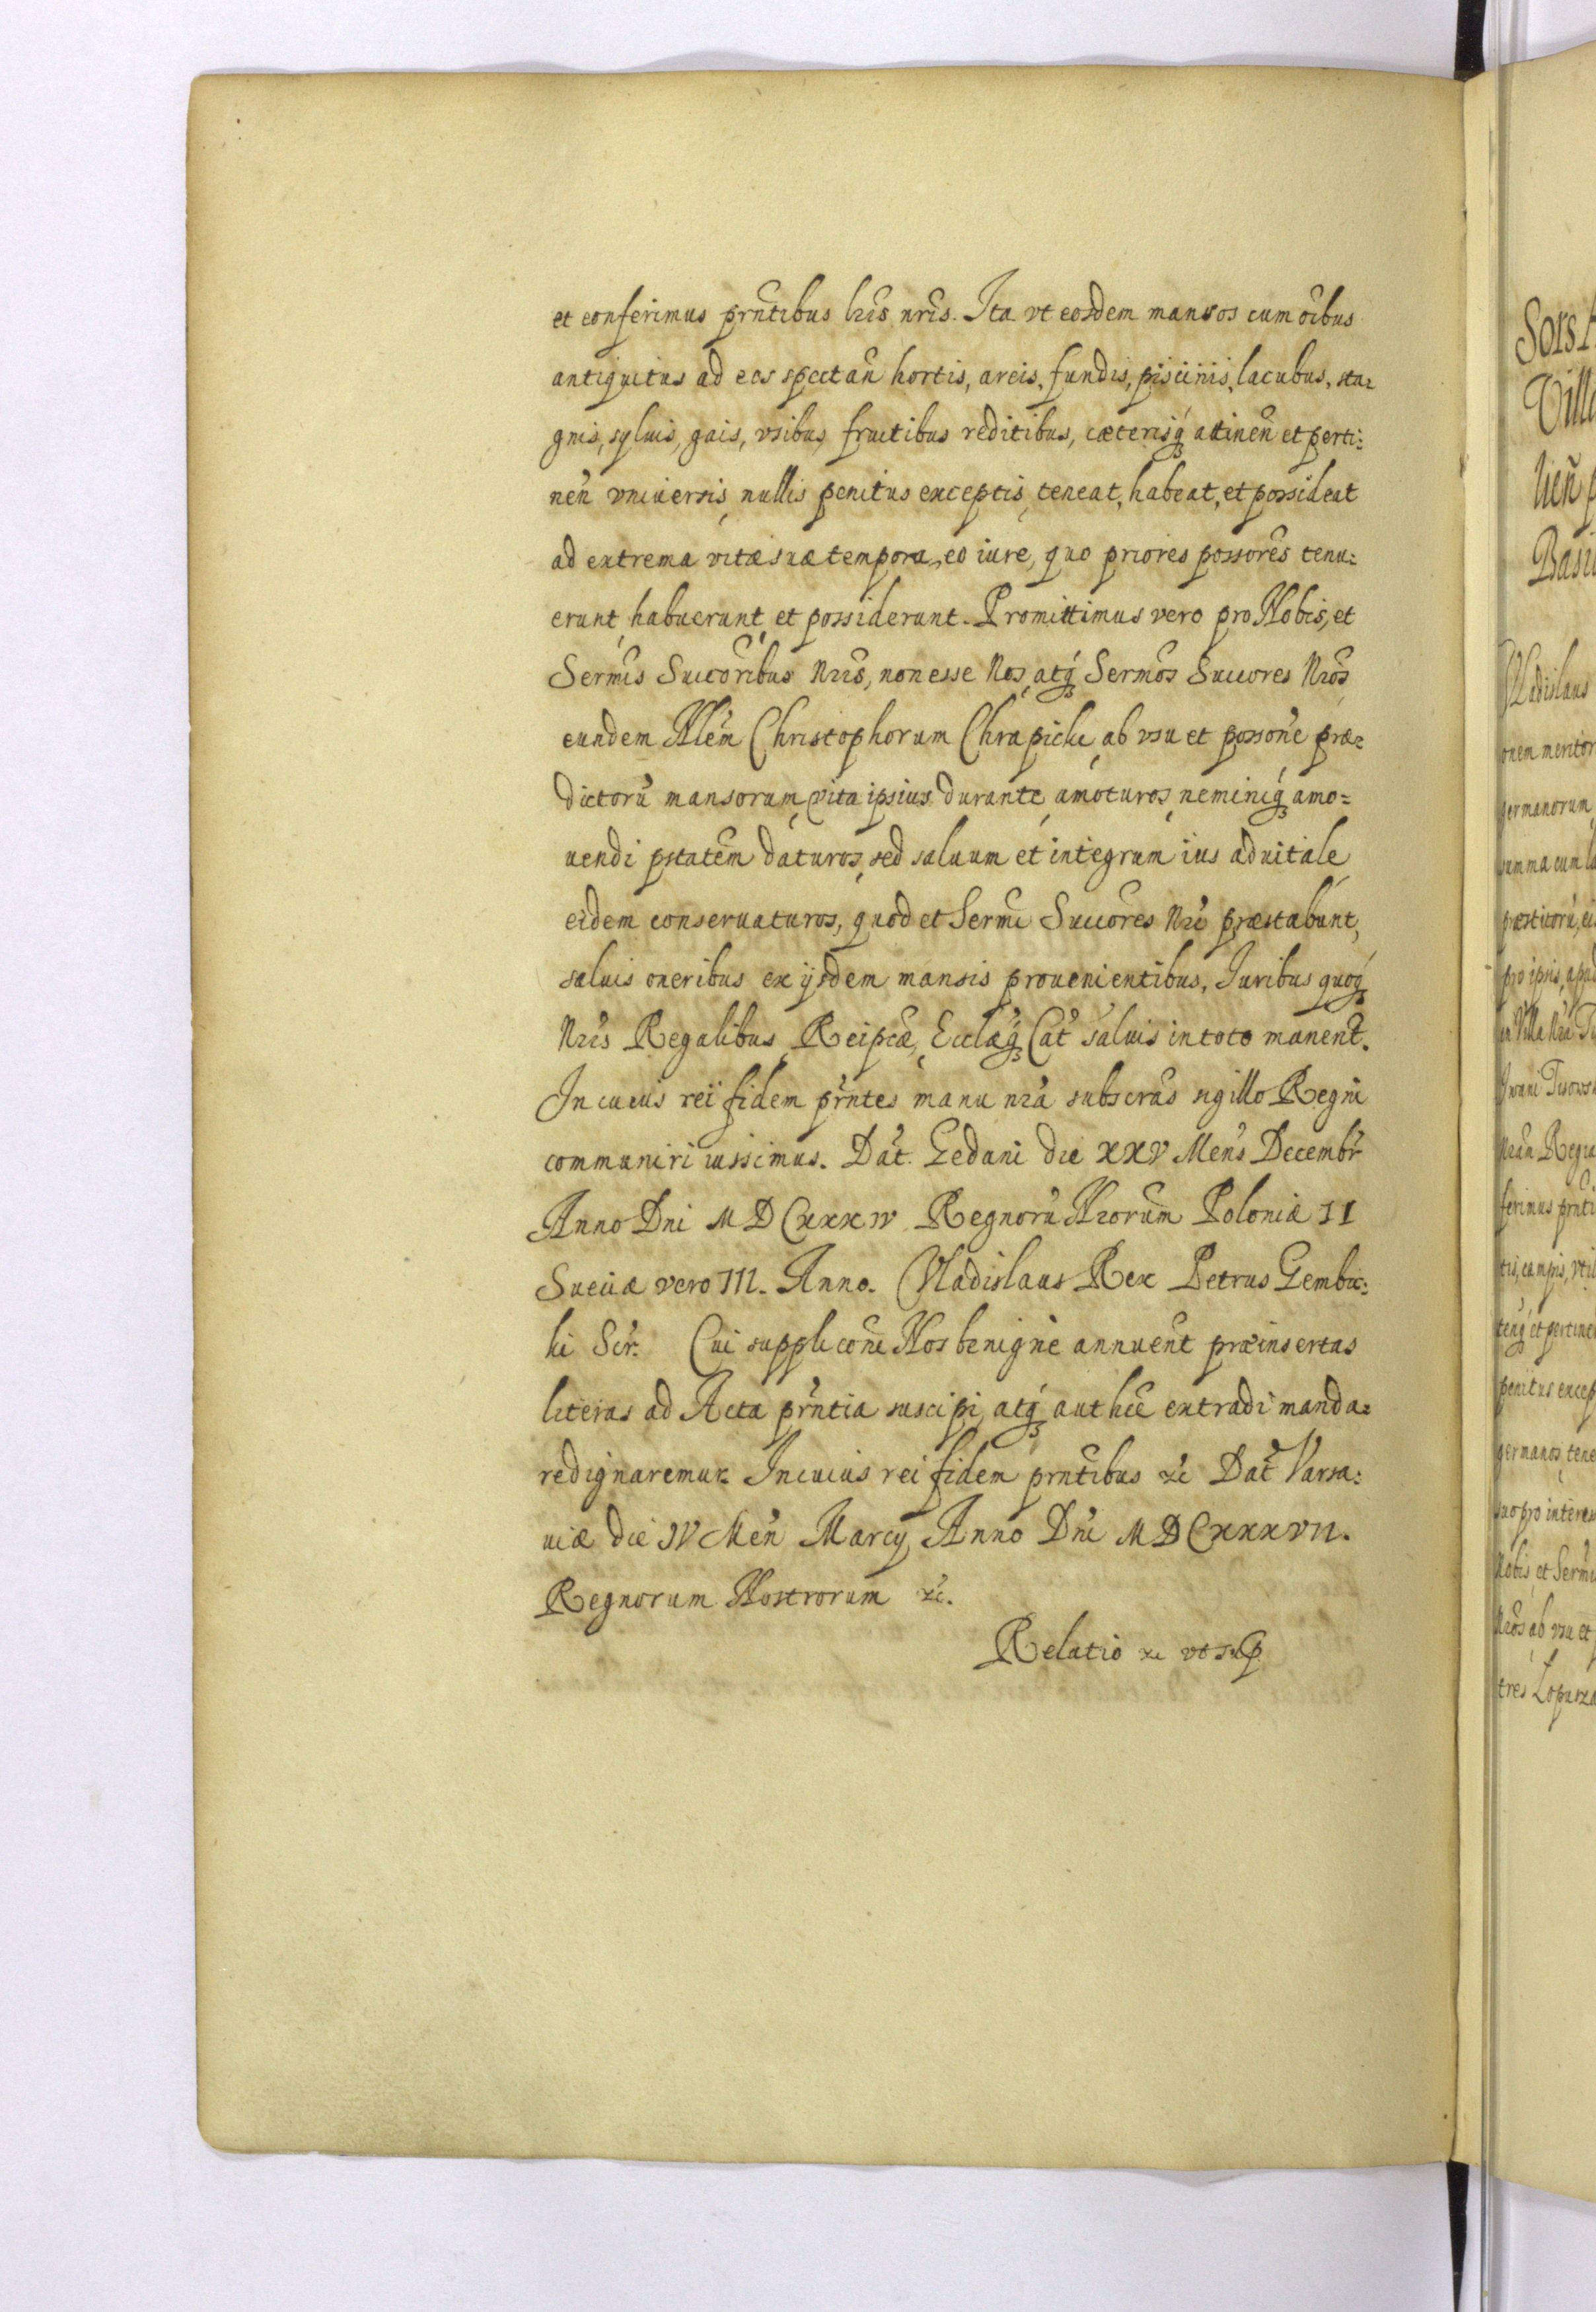 et conferimus prñtibus lr̃is nr̃is. Ita vt eosdem mansos cum õibus
antiquitus ad eos spectañ hortis, areis, fundis, piscinis, lacubus, sta=
gnis, syluis, gais, vsibus, fructibus reditibus, cæterisq́ʒ attineñ et perti=
neñ vniuersis, nullis penitus exceptis, teneat, habeat, et possideat
ad extrema vitæ suæ tempora, eo iure, quo priores possores̃ tenu=
erunt, habuerunt, et possiderunt. Promittimus vero pro Nobis, et
Serm̃is Succõribus Nr̃is, non esse Nos, atq́ʒ Serm̃os Succores Nr̃os
eundem Nlem̃ Christophorum Chrapicki, ab vsu et possoñe præ=
dictorũ mansorum, vita ipsius durante, amoturos, neminiq́ʒ amo=
uendi ptatem̃ daturos, sed saluum et integrum ius aduitale
eidem conseruaturos, quod et Serm̃i Succores̃ Nr̃i præstabunt,
saluis oneribus ex ijsdem mansis prouenientibus, Iuribus quoq́ʒ
Nr̃is Regalibus, Reipcæ, Ecclæq́ʒ Cat̃ saluis in toto maneñt.
In cuius rei fidem pr̃ntes manu nr̃a subscras̃ sigillo Regni
communiri iussimus. Dat̃. Gedani die XXV Mens̃ Decembr̃
Anno Dni M D CXXXIV Regnorũ Nr̃orum Poloniæ II
Sueciæ vero III. Anno. Vladislaus Rex Petrus Gembic=
ki Scr̃. Cui supplicoñi Nos benigne annueñt præinsertas
literas ad Acta pr̃ntia suscipi, atq́ʒ authcẽ extradi manda=
re dignaremur. In cuius rei fidem prñtibus &c̃ Dat̃ Varsa=
uiæ die IV Meñ Marcij Anno Dñi M D CXXXVII.
Regnorum Nostrorum &c̃.
Relatio &c vt sup̃